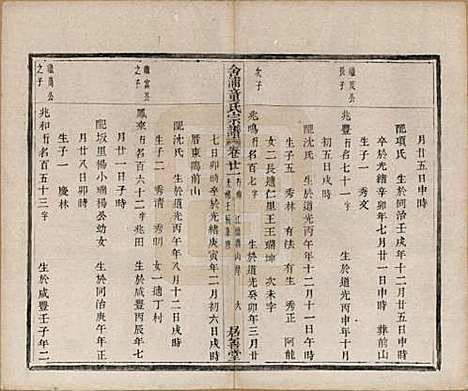 月廿五日申時
配項氏 生於同治壬戌年十二月廿五日申時
卒於光緒辛卯年七月廿一日卯時 葬前山
生子一 秀文
繼萬公長子
兆豐 行名七十一 生於道光丙申年十月
初五日戌時
次子
兆鳴 行名百七字 生於道光癸卯年三月廿
女二 長適仁里王王瑞坤 次未字
生子五 秀林 有法 有生 阿龍
配沈氏 生於道光丙午年八月十二日戌時
七日卯時 卒於光緒庚寅年二月初六日戌時
厝東鳴前山
合浦童氏宗譜 卷廿
居善堂
繼富公之子
鳳來 行名百六十二 字兆田 生於咸豐丙辰年七
生子二 秀清 秀明 女一 適丁村
月廿一日子時
配坂里楊小瑚楊公幼女 生於同治庚午年正
月廿八日卯時
生子一 慶林
繼茂公之子
兆和 行名百五十三字 生於咸豐壬子年二